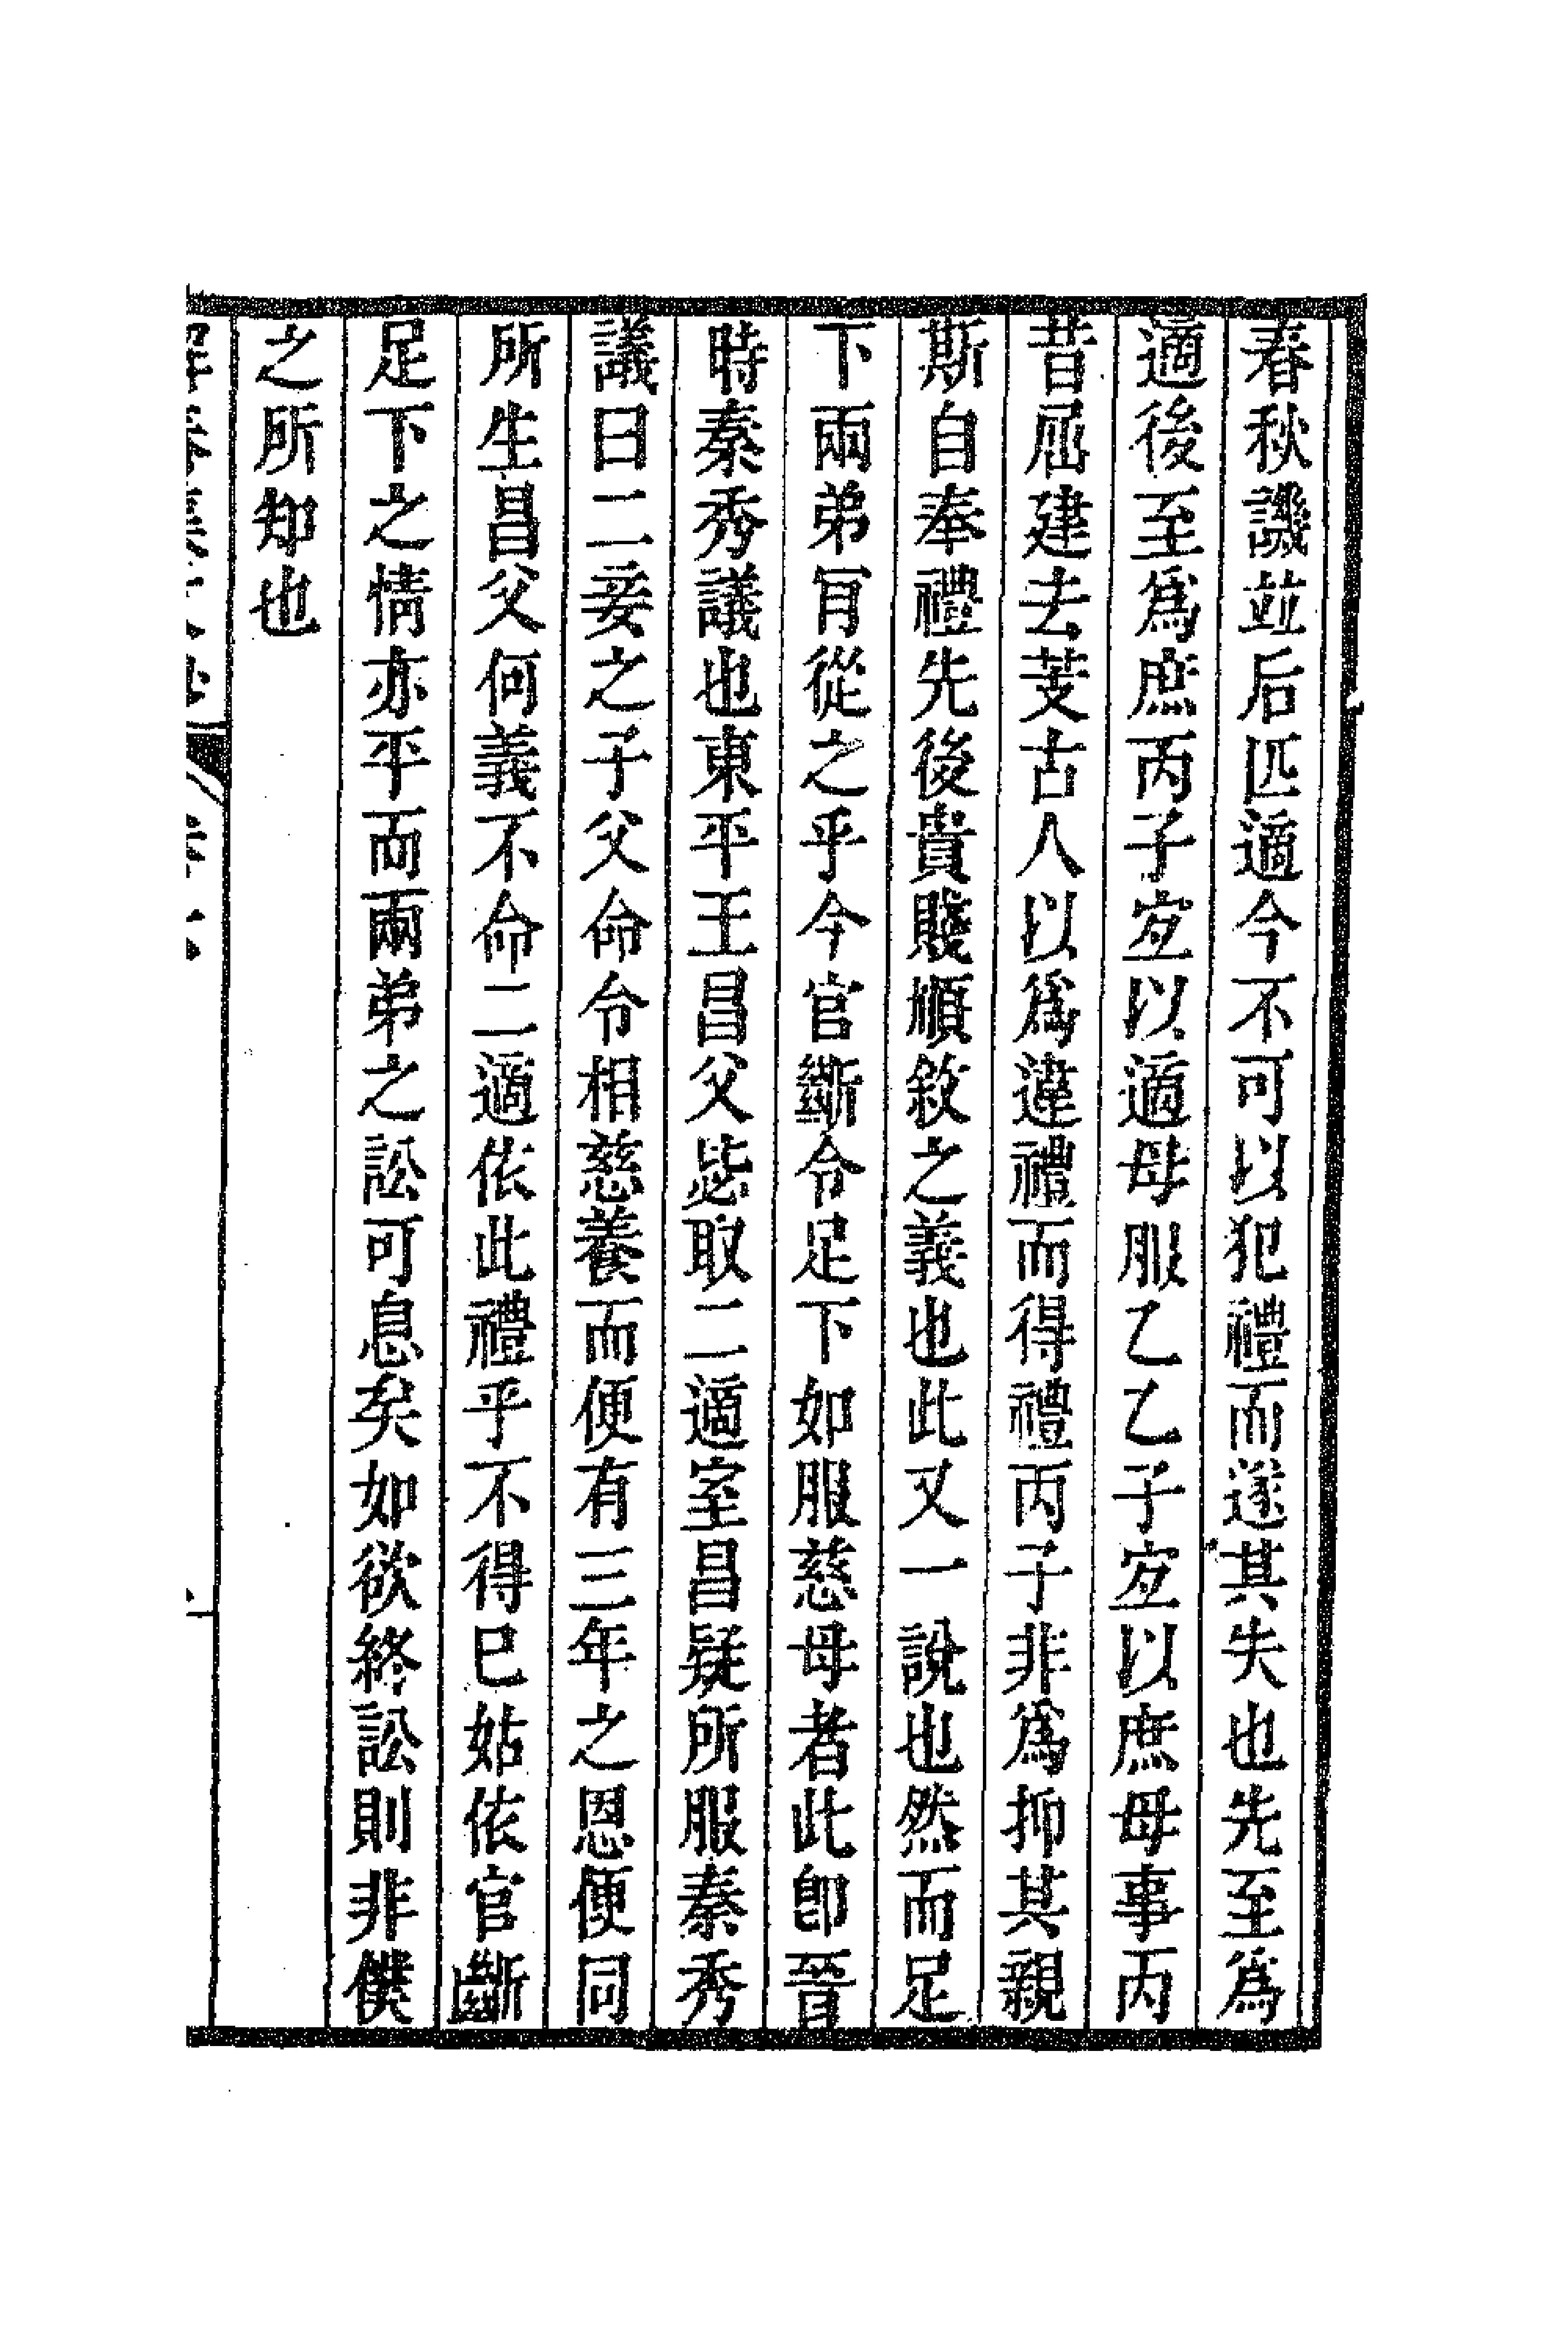 春秋譏竝后匹適今不可以犯禮而遂其失也先至爲
適後至爲庶丙子宐以適母服乙乙子宐以庶母事丙
昔屈建去芰古人以爲違禮而得禮丙子非爲抑其親
斯自奉禮先後貴賤順敘之義也此又一說也然而足
下兩弟肎從之乎今官斷令足下如服慈母者此卽晉
時秦秀議也東平王昌父毖取二適室昌疑所服秦秀
議曰二妾之子父命令相慈養而便有三年之恩便同
所生昌父何義不命二適依此禮乎不得巳姑依官斷
足下之情亦平而兩弟之訟可息矣如欲終訟則非僕
之所知也